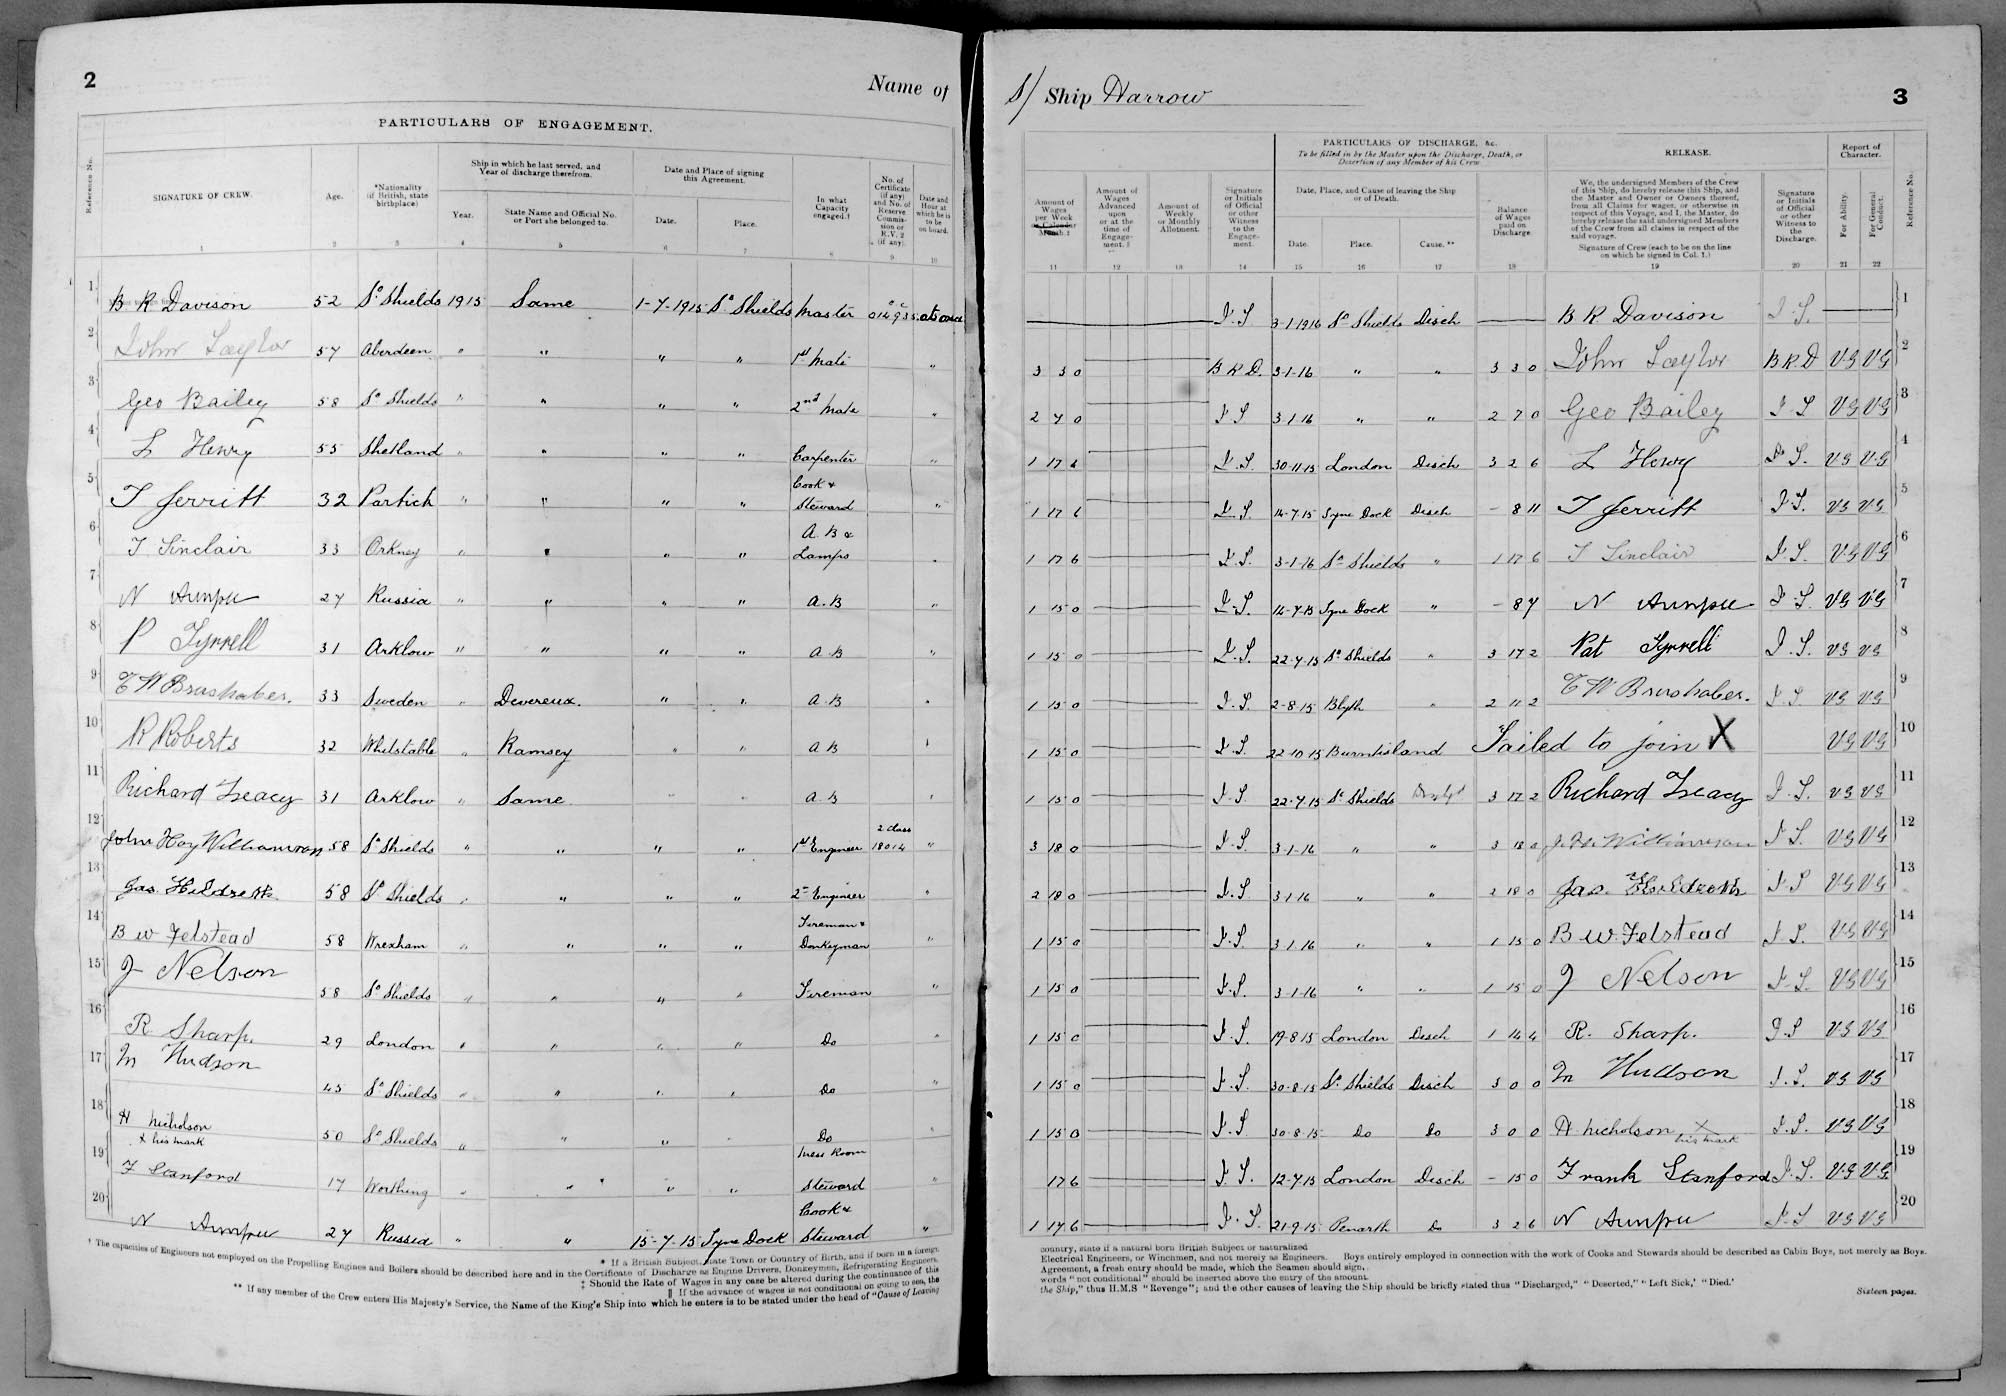 2
Name of
PARTICULARS OF ENGAGEMENT.
Reference No.
SIGNATURE OF CREW.
Age.
*Nationality (if British, state birthplace)
Ship in which he last served, and Year of discharge therefrom.
Year.
State Name and Official No. or Port she belonged to.
Date and Place of signing this Agreement.
Date.
Place.
In what Capacity engaged.†
No. of Certificate (if any) and No. of Reserve Commission or R.V. 2 (if any).
Date and Hour at which he is to be on board.
1 2 3 4 5 6 7 8 9 10
1 B R Davison 52 So Shields 1915 Same 1-7-1915 So Shields Master 014935 at once
2 John Taylor 57 Aberdeen " " " " 1st Mate "
3 Geo Bailey 58 So Shields " " " " 2nd Mate "
4 L Henry 55 Shetland " " " " Carpenter "
5 T Jerritt 32 Partick " " " " Cook & Steward "
6 T Sinclair 33 Orkney " " " " A.B & Lamps "
7 N 27 Russia " " " " A.B "
8 P Tyrrell 31 Arklow " " " " A B "
9 33 Sweden " Devereux. " " A.B "
10 R Roberts 32 Whitstable " Ramsey " " A B "
11 Richard Treacy 31 Arklow " Same " " A.B "
12 John Hay Williamson 58 So Shields " " " " 1st Engineer 2 Class 18014 "
13 Jas. Hildreth 58 So Shields " " " " 2nd Engineer "
14 B W Felstead 58 Wrexham " " " " Fireman & Donkeyman "
15 J Nelson 58 So Shields " " " " Fireman "
16 R Sharp. 29 London " " " " Do "
17 M Hudson 45 So Shields " " " " Do "
18 H Nicholson x his mark 50 So Shields " " " " Do "
19 F Stanford 17 Worthing " " " " Mess Room Steward "
20 N 27 Russia " " 15-7-15 Tyne Dock Cook & Steward "
* If a British Subject, state Town or Country of Birth, and if born in a foreign
† The capacities of Engineers not employed on the Propelling Engines and Boilers should be described here and in the Certificate of Discharge as Engine Drivers, Donkeymen, Refrigerating Engineers,
‡ Should the Rate of Wages in any case be altered during the continuance of this
|| If the advance of wages is not conditional on going to sea, the
** If any member of the Crew enters His Majesty's Service, the Name of the King's Ship into which he enters is to be stated under the head of "Cause of Leaving
S/ Ship Harrow
3
PARTICULARS OF DISCHARGE, &c.
To be filled in by the Master upon the Discharge, Death, or Desertion of any Member of his Crew
RELEASE.
Report of Character.
Amount of Wages per Week or Calendar Month.‡
Amount of Wages Advanced upon or at the time of Engagement.§
Amount of Weekly or Monthly Allotment.
Signature or Initials of Official or other Witness to the Engagement.
Date, Place, and Cause of leaving the Ship or of Death.
Date.
Place.
Cause.**
Balance of Wages paid on Discharge
We, the undersigned Members of the Crew of this Ship, do hereby release this Ship, and the Master and Owner or Owners thereof, from all Claims for wages, or otherwise in respect of this Voyage, and I, the Master, do hereby release the said undersigned Members of the Crew from all claims in respect of the said voyage.
Signature of Crew (each to be on the line on which he signed in Col. 1.)
Signature or Initials of Official or other Witness to the Discharge.
For Ability.
For General Conduct.
Reference No.
11 12 13 14 15 16 17 18 19 20 21 22
3-1-1916 So Shields Disch B R Davison 1
3 3 0 B R D. 3-1-16 " " 3 3 0 John Taylor B R. D V.G V.G 2
2 7 0 3-1-16 " " 2 7 0 Geo Bailey V.G V.G 3
1 17 6 30-11-15 London Disch 3 2 6 L Henry V.G V.G 4
1 17 6 14-7-15 Tyne Dock Disch - 8 11 T Jerritt V.G V.G 5
1 17 6 3-1-16 So Shields " 1 17 6 T Sinclair V.G V.G 6
1 15 0 14-7-15 Tyne Dock " - 8 7 N V.G V.G 7
1 15 0 22-7-15 So Shields " 3 17 2 Pat Tyrrell V.G V.G 8
1 15 0 2-8-15 Blyth " 2 11 2 V.G V.G 9
1 15 0 22-10-15 Burntisland Failed to join X V.G V.G 10
1 15 0 22-7-15 So Shields 3 17 2 Richard Treacy V.G V.G 11
3 18 0 3-1-16 " " 3 18 0 Williamson V.G V.G 12
2 18 0 3-1-16 " " 2 18 0 Jas. Hildreth V.G V.G 13
1 15 0 3-1-16 " " 1 15 0 B W. Felstead V.G V.G 14
1 15 0 3-1-16 " " 1 15 0 J Nelson V.G V.G 15
1 15 0 19-8-15 London Disch 1 14 4 R. Sharp. V.G V.G 16
1 15 0 30-8-15 So Shields Disch 3 0 0 M Hudson V.G V.G 17
1 15 0 30-8-15 Do Do 3 0 0 H. Nicholson x his mark V.G V.G 18
17 6 12-7-15 London Disch - 15 0 Frank Stanford V.G V.G 19
1 17 6 21-9-15 Penarth Do 3 2 6 N V.G V.G 20
country, state if a natural born British Subject or naturalized
Electrical Engineers, or Winchmen, and not merely as Engineers. Boys entirely employed in connection with the work of Cooks and Stewards should be described as Cabin Boys, not merely as Boys.
Agreement, a fresh entry should be made, which the Seamen should sign.
words "not conditional" should be inserted above the entry of the amount.
the Ship," thus H.M.S "Revenge"; and the other causes of leaving the Ship should be briefly stated thus "Discharged," "Deserted," "Left Sick,' "Died.'
Sixteen pages.